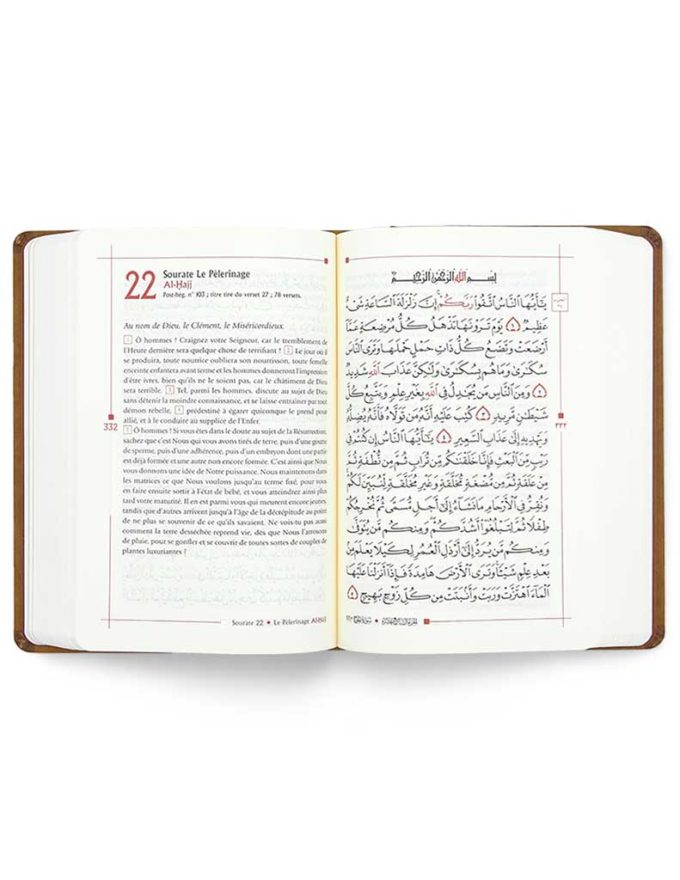 22
Sourate Le Pèlerinage
Al-Ḥajj
Post-hég. n° 103 ; titre tiré du verset 27 ; 78 versets.
Au nom de Dieu, le Clément, le Miséricordieux.
1 Ô hommes ! Craignez votre Seigneur, car le tremblement de
l'Heure dernière sera quelque chose de terrifiant ! 2 Le jour où il
se produira, toute nourrice oubliera son nourrisson, toute femelle
enceinte enfantera avant terme et les hommes donneront l'impression
d'être ivres, bien qu'ils ne le soient pas, car le châtiment de Dieu
sera terrible. 3 Tel, parmi les hommes, discute au sujet de Dieu
sans détenir la moindre connaissance, et se laisse entraîner par tout
démon rebelle, 4 prédestiné à égarer quiconque le prend pour
allié, et à le conduire au supplice de l'Enfer.
5 Ô hommes ! Si vous êtes dans le doute au sujet de la Résurrection,
sachez que c'est Nous qui vous avons tirés de terre, puis d'une goutte
de sperme, puis d'une adhérence, puis d'un embryon dont une partie
est déjà formée et une autre non encore formée. C'est ainsi que Nous
vous donnons une idée de Notre puissance. Nous maintenons dans
les matrices ce que Nous voulons jusqu'au terme fixé, pour vous
en faire ensuite sortir à l'état de bébé, et vous atteindrez ainsi plus
tard votre maturité. Il en est parmi vous qui meurent encore jeunes,
tandis que d'autres arrivent jusqu'à l'âge de la décrépitude au point
de ne plus se souvenir de ce qu'ils savaient. Ne vois-tu pas aussi
comment la terre desséchée reprend vie, dès que Nous l'arrosons
de pluie, pour se gonfler et se couvrir de toutes sortes de couples de
plantes luxuriantes ?
332
Sourate 22 • Le Pèlerinage
بِسْمِ ٱللَّهِ ٱلرَّحْمَٰنِ ٱلرَّحِيمِ
يَٰٓأَيُّهَا ٱلنَّاسُ ٱتَّقُوا۟ رَبَّكُمْ إِنَّ زَلْزَلَةَ ٱلسَّاعَةِ شَىْءٌ
عَظِيمٌ ١ يَوْمَ تَرَوْنَهَا تَذْهَلُ كُلُّ مُرْضِعَةٍ عَمَّآ
أَرْضَعَتْ وَتَضَعُ كُلُّ ذَاتِ حَمْلٍ حَمْلَهَا وَتَرَى ٱلنَّاسَ
سُكَٰرَىٰ وَمَا هُم بِسُكَٰرَىٰ وَلَٰكِنَّ عَذَابَ ٱللَّهِ شَدِيدٌ
٢ وَمِنَ ٱلنَّاسِ مَن يُجَٰدِلُ فِى ٱللَّهِ بِغَيْرِ عِلْمٍ وَيَتَّبِعُ كُلَّ
شَيْطَٰنٍ مَّرِيدٍ ٣ كُتِبَ عَلَيْهِ أَنَّهُۥ مَن تَوَلَّاهُ فَأَنَّهُۥ يُضِلُّهُۥ
وَيَهْدِيهِ إِلَىٰ عَذَابِ ٱلسَّعِيرِ ٤ يَٰٓأَيُّهَا ٱلنَّاسُ إِن كُنتُمْ فِى
رَيْبٍ مِّنَ ٱلْبَعْثِ فَإِنَّا خَلَقْنَٰكُم مِّن تُرَابٍ ثُمَّ مِن نُّطْفَةٍ ثُمَّ
مِنْ عَلَقَةٍ ثُمَّ مِن مُّضْغَةٍ مُّخَلَّقَةٍ وَغَيْرِ مُخَلَّقَةٍ لِّنُبَيِّنَ لَكُمْ
وَنُقِرُّ فِى ٱلْأَرْحَامِ مَا نَشَآءُ إِلَىٰٓ أَجَلٍ مُّسَمًّى ثُمَّ نُخْرِجُكُمْ
طِفْلًا ثُمَّ لِتَبْلُغُوٓا۟ أَشُدَّكُمْ وَمِنكُم مَّن يُتَوَفَّىٰ
وَمِنكُم مَّن يُرَدُّ إِلَىٰٓ أَرْذَلِ ٱلْعُمُرِ لِكَيْلَا يَعْلَمَ مِنۢ
بَعْدِ عِلْمٍ شَيْـًٔا وَتَرَى ٱلْأَرْضَ هَامِدَةً فَإِذَآ أَنزَلْنَا عَلَيْهَا
ٱلْمَآءَ ٱهْتَزَّتْ وَرَبَتْ وَأَنۢبَتَتْ مِن كُلِّ زَوْجٍۭ بَهِيجٍ ٥
٣٣٢